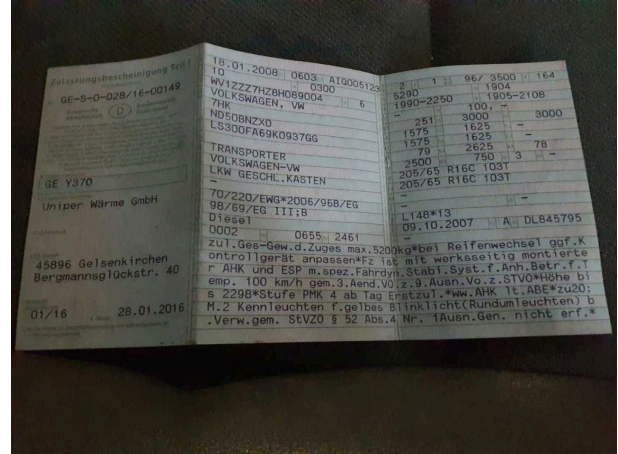 Zulassungsbescheinigung Teil I
GE-S-0-028/16-00149
D
GE Y370
Uniper Wärme GmbH
45896 Gelsenkirchen
Bergmannsglückstr. 40
01/16
28.01.2016
18.01.2008 0603 AIQ005123
10 0300
WV1ZZZ7HZ8H089004 6
VOLKSWAGEN, VW
7HK
ND50BNZX0
LS300FA69K0937GG
TRANSPORTER
VOLKSWAGEN-VW
LKW GESCHL.KASTEN
-
70/220/EWG*2006/96B/EG
98/69/EG III;B
Diesel
0002 0655 2461
2 1 96/ 3500 164
5290 1904
1990-2250 1905-2108
- 100, -
251 3000 3000
1575 1625 -
1575 1625 -
79 2625 78
2500 750 3 -
205/65 R16C 103T
205/65 R16C 103T
-
- -
L148*13
09.10.2007 A DL845795
zul.Ges-Gew.d.Zuges max.5200kg*bei Reifenwechsel ggf.K
ontrollgerät anpassen*Fz ist mit werksseitig montierte
r AHK und ESP m.spez.Fahrdyn.Stabi.Syst.f.Anh.Betr.f.T
emp. 100 km/h gem.3.Aend.VO.z.9.Ausn.Vo.z.STVO*Höhe bi
s 2298*Stufe PMK 4 ab Tag Erstzul.*ww.AHK lt.ABE*zu20:
M.2 Kennleuchten f.gelbes Blinklicht(Rundumleuchten) b
.Verw.gem. StVZO § 52 Abs.4 Nr. 1Ausn.Gen. nicht erf.*